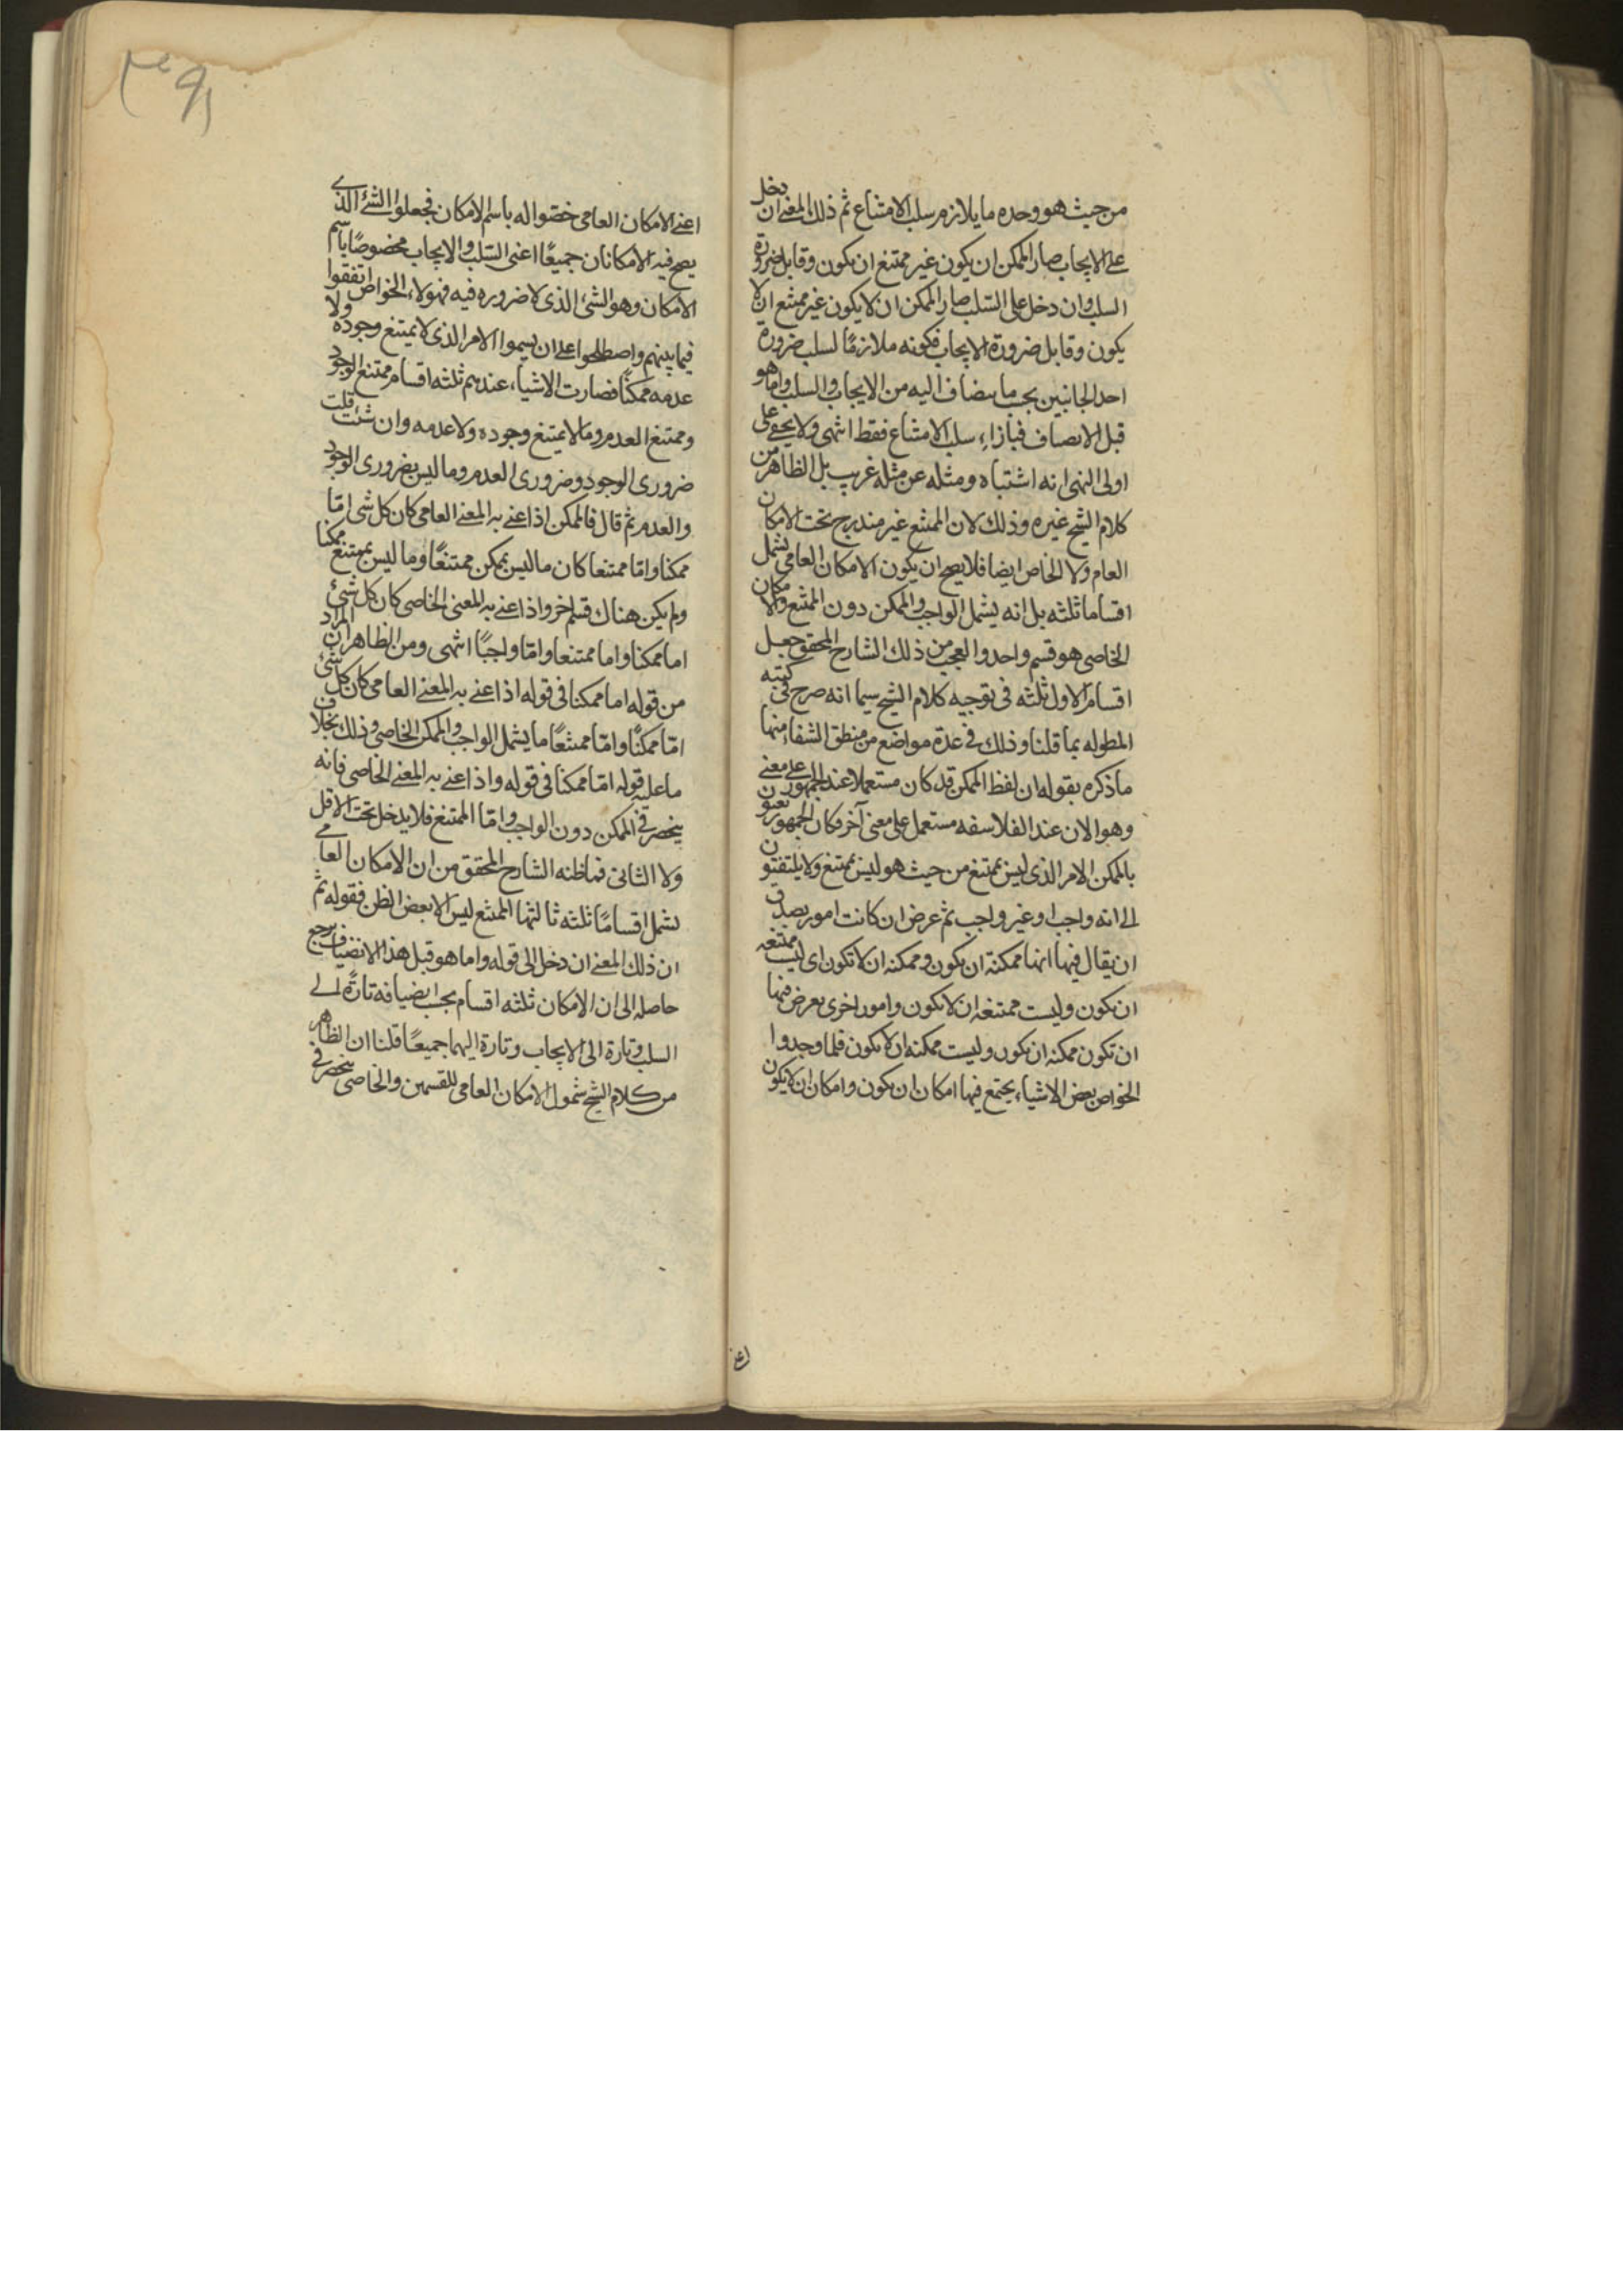 من حيث هو وحده ما يلازم سلب الامتناع ثم ذلك المعنى ان دخل
على الايجاب صار الممكن ان يكون غير ممتنع ان يكون وقابل ضرورة
السلب وان دخل على السلب صار الممكن ان لا يكون غير ممتنع ان لا
يكون وقابل ضرورة الايجاب فكونه ملازمًا لسلب ضرورة
احد الجانبين بحسب ما يضاف اليه من الايجاب والسلب واما هو
قبل الانصاف فبازاء سلب الامتناع فقط انتهى ولا يخفى على
اولى النهى انه اشتباه ومثله عن مثله غريب بل الظاهر من
كلام الشيخ غيره وذلك لان الممتنع غير مندرج تحت الامكان
العام ولا الخاص ايضا فلا يصح ان يكون الامكان العامى يشمل
اقساما ثلثه بل انه يشمل الواجب والممكن دون الممتنع والامكان
الخاصى هو قسم واحد والعجب من ذلك الشارح المحقق جعل
اقسام الاول ثلثه فى توجيه كلام الشيخ سيما انه صرح فى كتبه
المطوله بما قلنا وذلك فى عدة مواضع من منطق الشفاء منها
ما ذكره بقوله ان لفظ الممكن قد كان مستعملا عند الجمهور على معنى
وهو الان عند الفلاسفه مستعمل على معنى آخر وكان الجمهور يعنون
بالممكن الامر الذى ليس بممتنع من حيث هو ليس بممتنع ولا يلتفتون
الى انه واجب او غير واجب ثم عرض ان كانت امور يصدق
ان يقال فيها انها ممكنة ان يكون وممكنه ان لا تكون اى ليست ممتنعه
ان تكون وليست ممتنعه ان لا تكون وامور اخرى يعرض فيها
ان تكون ممكنه ان تكون وليست ممكنه ان لا تكون فلما وجدوا
الخواص بعض الاشياء يجتمع فيها امكان ان تكون وامكان ان لا يكون
اعنى
اعنى الامكان العامى خصّوا له باسم الامكان فجعلوا الشئ الذى
يصح فيه الامكانان جميعًا اعنى السّلب والايجاب مخصوصًا باسم
الامكان وهو الشئ الذى لا ضروره فيه فهولاء الخواص اتفقوا
فيما بينهم واصطلحوا على ان يسموا الامر الذى لا يمتنع وجوده ولا
عدمه ممكنًا فصارت الاشياء عندهم ثلثه اقسام ممتنع الوجود
وممتنع العدم وما لا يمتنع وجوده ولا عدمه وان شئت قلت
ضرورى الوجود وضرورى العدم وما ليس بضرورى الوجود
والعدم ثم قال فالممكن اذا عنى به المعنى العامى كان كل شئ امّا
ممكنا وامّا ممتنعا كان ما ليس بممكن ممتنعًا وما ليس بممتنع ممكنا
ولم يكن هناك قسم اخر واذا عنى به المعنى الخاصى كان كل شئ
اما ممكنا واما ممتنعا وامّا واجبًا انتهى ومن الظاهر ان المراد
من قوله اما ممكنا فى قوله اذا عنى به المعنى العامى كان كل شئ
امّا ممكنًا وامّا ممتنعًا ما يشمل الواجب والممكن الخاصى وذلك بخلاف
ما عليه قوله امّا ممكنا فى قوله واذا عنى به المعنى الخاصى فانه
ينحصر فى الممكن دون الواجب وامّا الممتنع فلا يدخل تحت الاول
ولا الثانى فما ظنه الشارح المحقق من ان الامكان العامى
يشمل اقسامًا ثلثه ثالثها الممتنع ليس الا بعض الظن فقوله ثم
ان ذلك المعنى ان دخل الى قوله واما هو قبل هذا الانضياف يرجع
حاصله الى ان الامكان ثلثه اقسام بحسب انضيافه تارةً الى
السلب وتارة الى الايجاب وتارة اليهما جميعًا قلنا ان الظاهر
من كلام الشيخ شمول الامكان العامى للقسمين والخاصى ينحصر فى